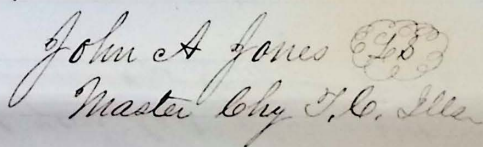 John A Jones LS
Master Chy T.C. Ills